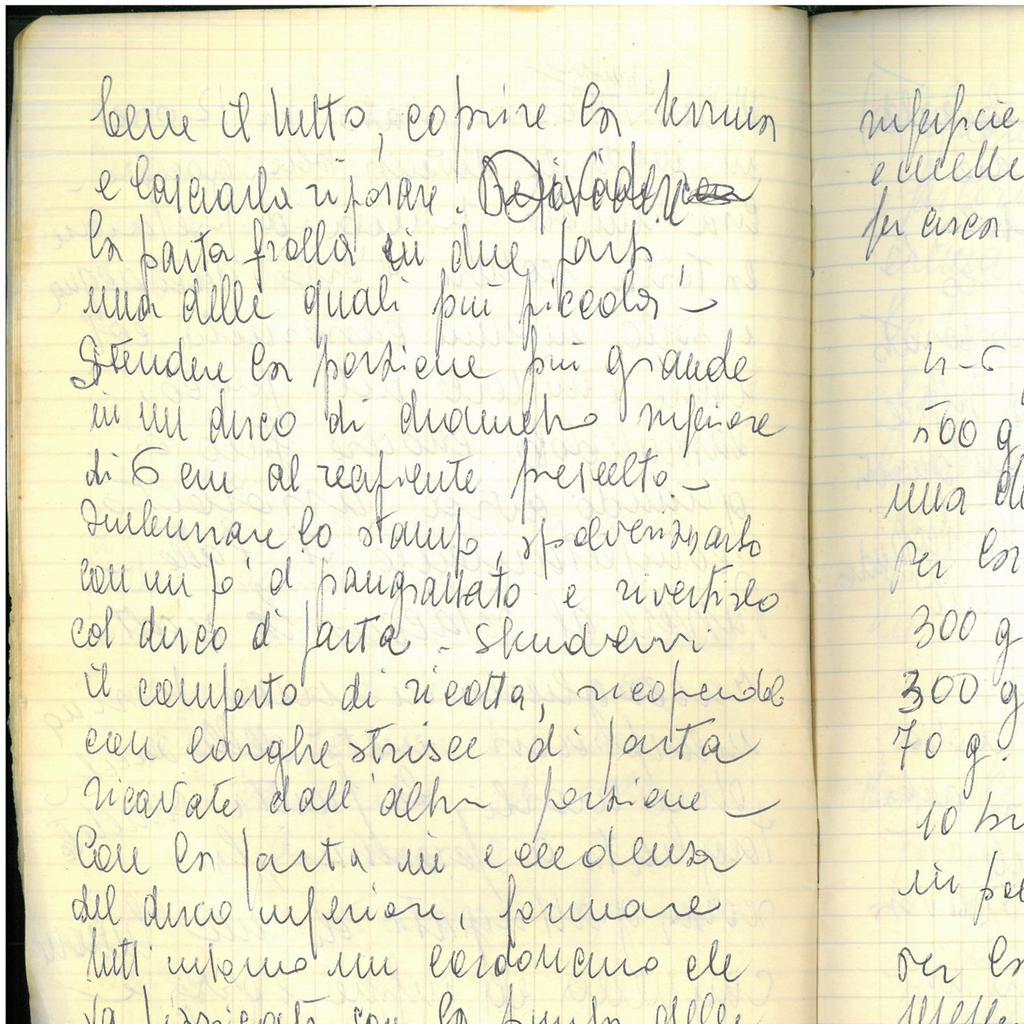 bene il tutto, coprire la terrina
e lasciarla riposare. Dividere
la pasta frolla in due parti,
una delle quali più piccola -
Stendere la porzione più grande
in un disco di diametro superiore
di 6 cm al recipiente prescelto -
Imburrare lo stampo, spolverizzarlo
con un pò d pangrattato e rivestirlo
col disco d pasta - Stendervi
il composto di ricotta, ricoprendolo
con larghe strisce di pasta
ricavate dall'altra porzione -
Con la pasta in eccedenza
del disco inferiore, formare
tutt'intorno un cordoncino che
va con la punta delle
superficie
e
per circa
500 g
una
per la
300 g
300 g
70 g.
10
in
per la